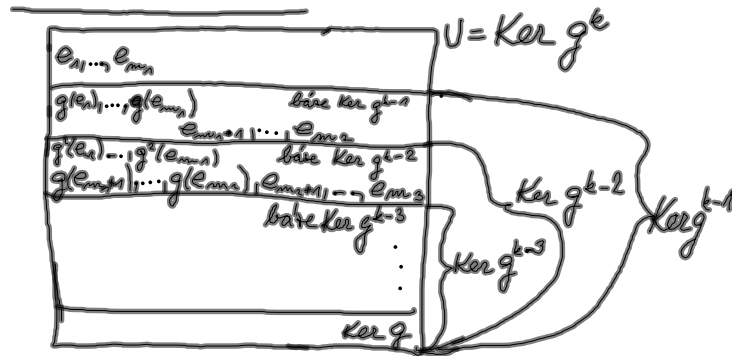 U = Ker g^k
e_1, ..., e_{m_1}
g(e_1), ..., g(e_{m_1}) báze Ker g^{k-1}
e_{m_1+1}, ..., e_{m_2}
g^2(e_1), ..., g^2(e_{m_1}) báze Ker g^{k-2}
g(e_{m_1+1}), ..., g(e_{m_2}), e_{m_2+1}, ..., e_{m_3}
báze Ker g^{k-3}
Ker g^{k-2}
Ker g^{k-1}
Ker g^{k-3}
⋮
Ker g